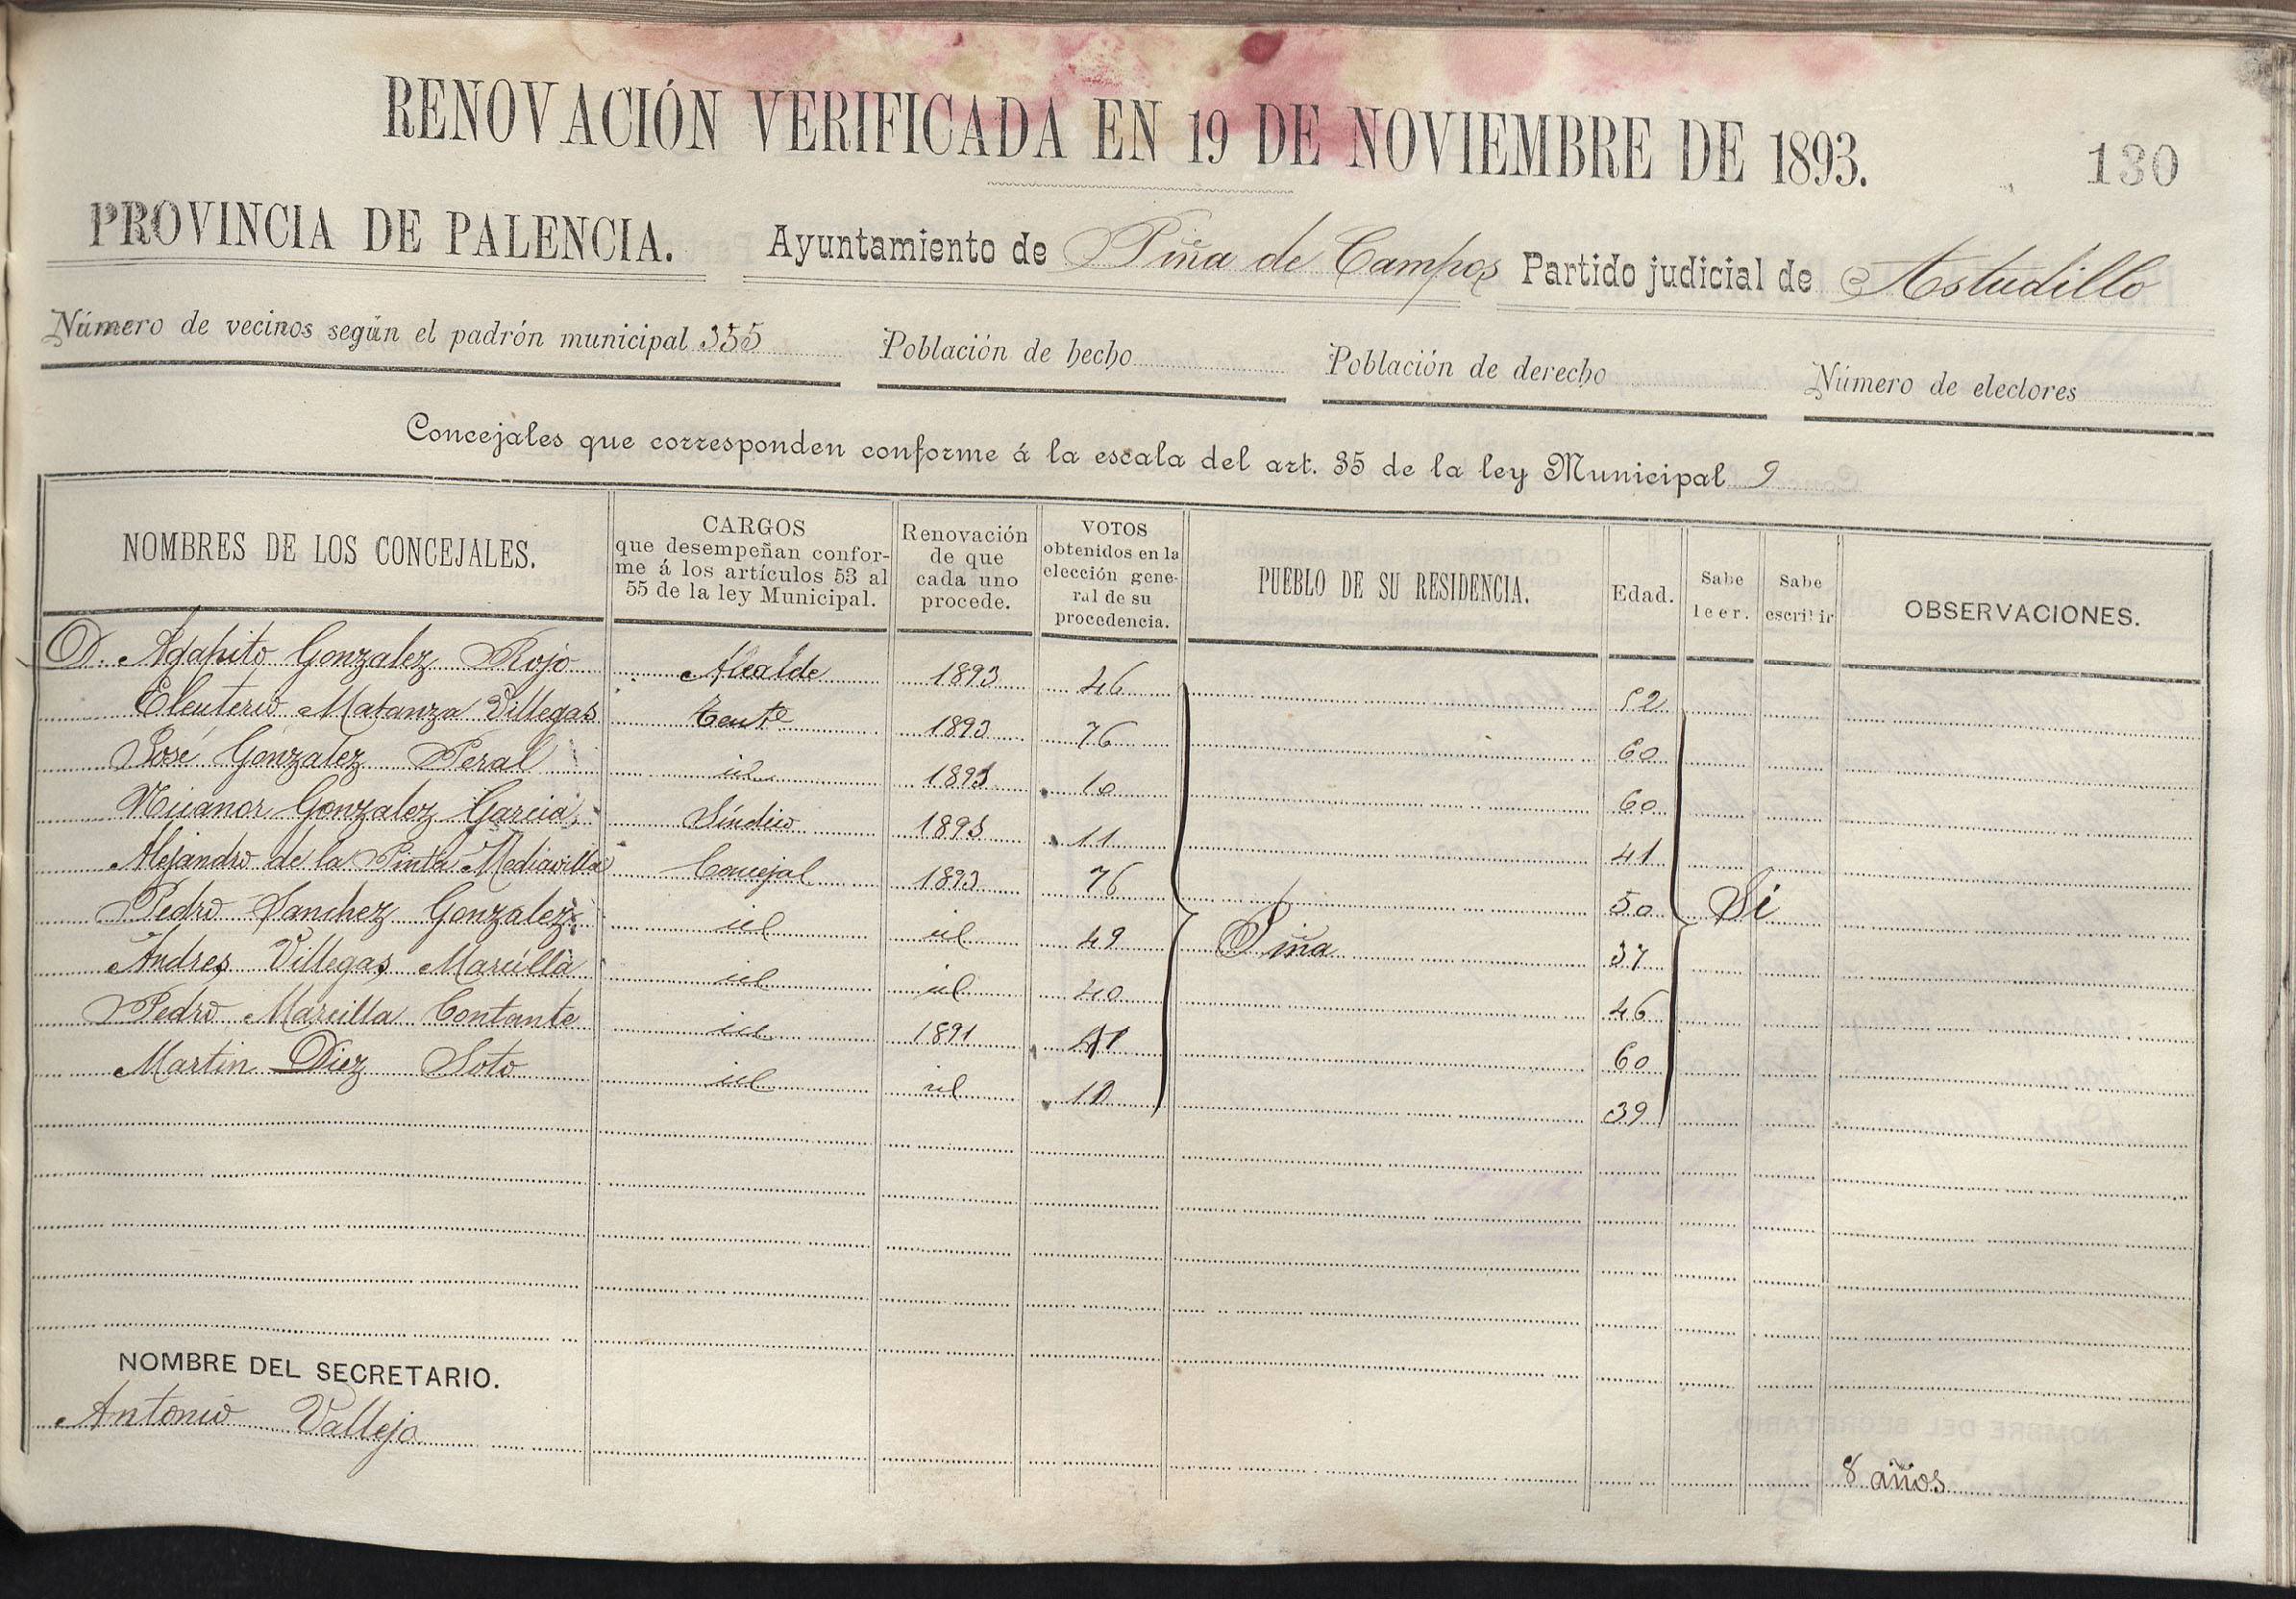 RENOVACIÓN VERIFICADA EN 19 DE NOVIEMBRE DE 1893.
130
PROVINCIA DE PALENCIA. Ayuntamiento de Piña de Campos Partido judicial de Astudillo
Número de vecinos según el padrón municipal 355 Población de hecho Población de derecho Número de electores
Concejales que corresponden conforme á la escala del art. 35 de la ley Municipal 9
NOMBRES DE LOS CONCEJALES. CARGOS que desempeñan confor- me á los artículos 53 al 55 de la ley Municipal. Renovación de que cada uno procede. VOTOS obtenidos en la elección gene- ral de su procedencia. PUEBLO DE SU RESIDENCIA. Edad. Sabe leer. Sabe escribir OBSERVACIONES.
D. Agapito Gonzalez Rojo Alcalde 1893 46 52
Eleuterio Matanza Villegas Tente 1893 76 60
José Gonzalez Peral id 1893 10 60
Nicanor Gonzalez Garcia Síndico 1893 11 41
Alejandro de la Pinta Mediavilla Concejal 1893 76 50 Si
Pedro Sanchez Gonzalez id id 49 Piña 37
Andres Villegas Marcilla id id 40 46
Pedro Marcilla Contante id 1891 60
Martin Diez Soto id id 39
NOMBRE DEL SECRETARIO.
Antonio Vallejo
8 años